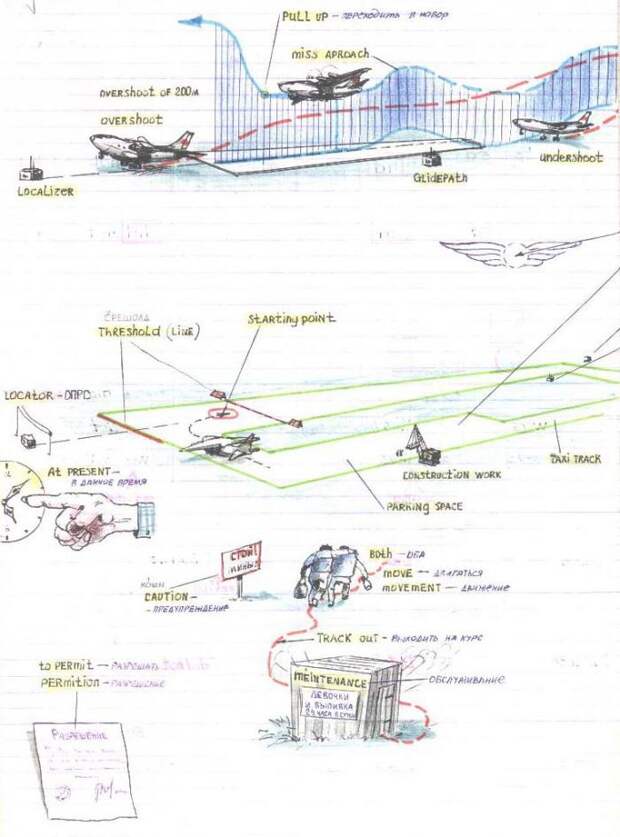 PULL UP – переходить в набор
MISS APROACH
OVERSHOOT OF 200м
OVERSHOOT
UNDERSHOOT
GLIDEPATH
LOCALIZER
СРЕШОЛД
THRESHOLD (LINE)
STARTING POINT
LOCATOR – ДПРС
AT PRESENT –
В ДАННОЕ ВРЕМЯ
TAXI TRACK
CONSTRUCTION WORK
PARKING SPACE
СТОЙ!
МИНЫ!
BOTH – ОБА
MOVE – ДВИГАТЬСЯ
MOVEMENT – ДВИЖЕНИЕ
CAUTION –
– ПРЕДУПРЕЖДЕНИЕ
TRACK OUT – ВЫХОДИТЬ НА КУРС
TO PERMIT – РАЗРЕШАТЬ
PERMITION – РАЗРЕШЕНИЕ
MEINTENANCE
ОБСЛУЖИВАНИЕ
ДЕВОЧКИ
И ВЫПИВКА
24 ЧАСА В СУТКИ
РАЗРЕШЕНИЕ